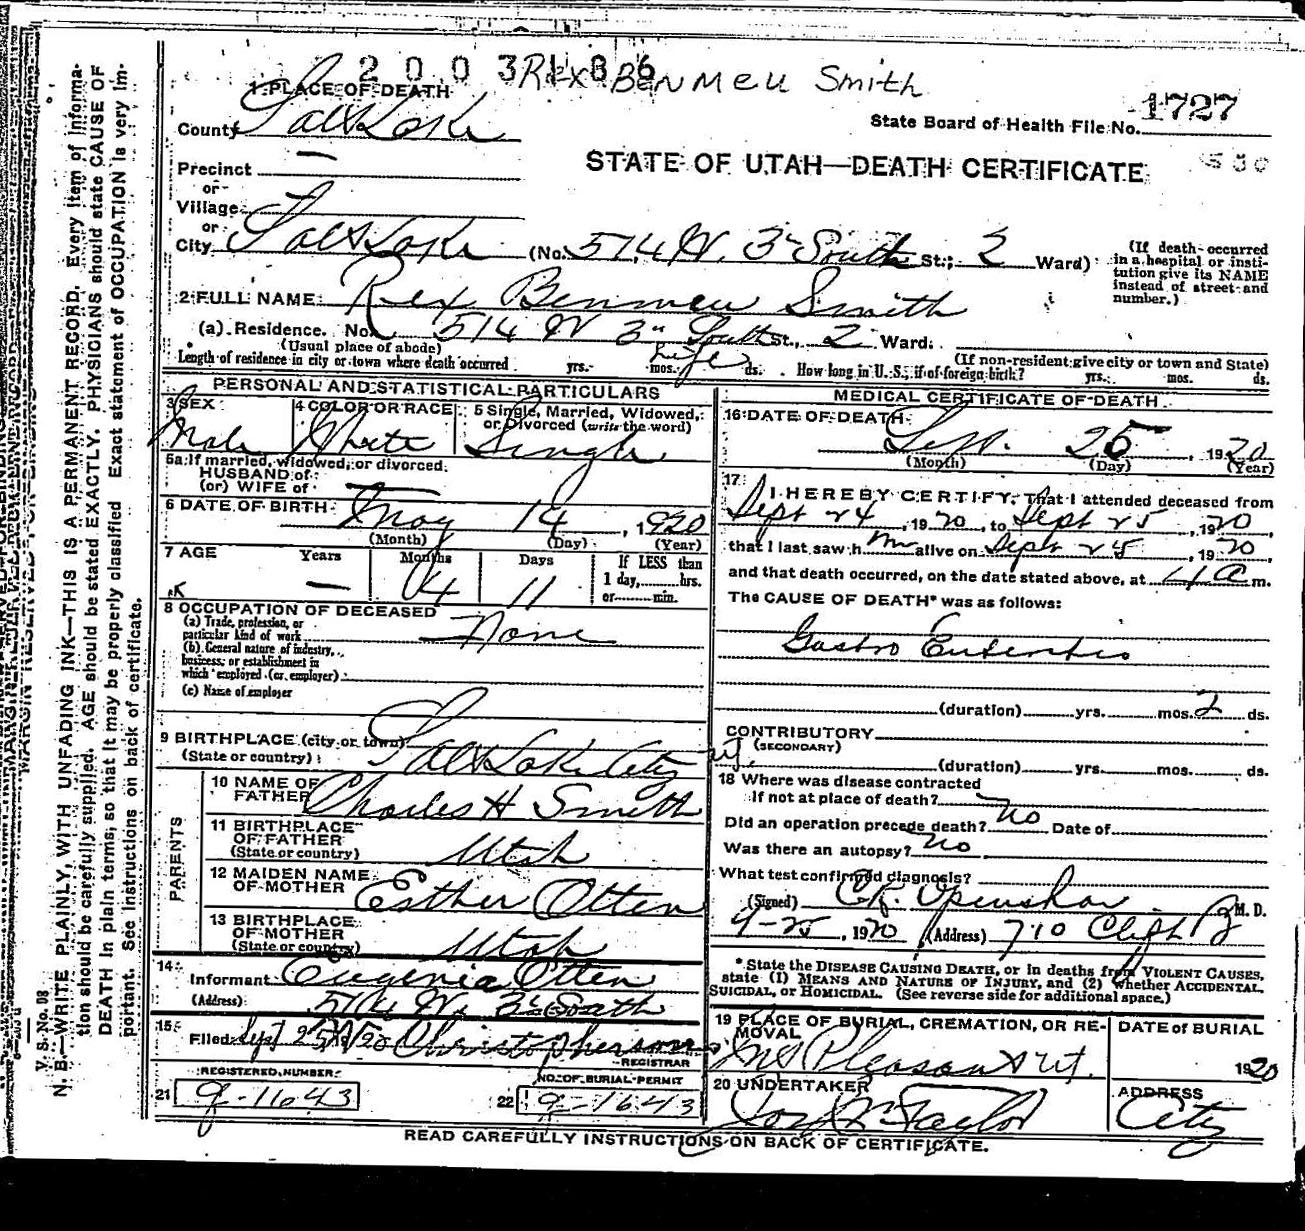 2003186 Rex Benmeu Smith
1 PLACE OF DEATH
County Salt Lake
State Board of Health File No. 1727
STATE OF UTAH—DEATH CERTIFICATE
Precinct —
or
Village
or
City Salt Lake (No. 514 W. 3rd South St.; 2 Ward)
(If death occurred in a hospital or institution give its NAME instead of street and number.)
2 FULL NAME Rex Benmeu Smith
(a) Residence. No. 514 W 3rd South St., 2 Ward.
(Usual place of abode)
(If non-resident give city or town and State)
Length of residence in city or town where death occurred yrs. mos. Life ds. How long in U. S., if of foreign birth? yrs. mos. ds.
PERSONAL AND STATISTICAL PARTICULARS
3 SEX Male
4 COLOR OR RACE White
5 Single, Married, Widowed, or Divorced (write the word) Single
5a If married, widowed, or divorced
HUSBAND of
(or) WIFE of —
6 DATE OF BIRTH May 14, 1920
(Month) (Day) (Year)
7 AGE Years — Months 4 Days 11 If LESS than 1 day, hrs. or min.
8 OCCUPATION OF DECEASED
(a) Trade, profession, or particular kind of work None
(b) General nature of industry, business, or establishment in which employed (or employer)
(c) Name of employer
9 BIRTHPLACE (city or town)
(State or country) Salt Lake City
PARENTS
10 NAME OF FATHER Charles H Smith
11 BIRTHPLACE OF FATHER (State or country) Utah
12 MAIDEN NAME OF MOTHER Esther Otten
13 BIRTHPLACE OF MOTHER (State or country) Utah
14 Informant Eugenia Otten
(Address) 514 W. 3rd South
15 Filed Sept 25 1920 Christopherson
REGISTRAR
REGISTERED NUMBER
21 9-11643
NO. OF BURIAL PERMIT
22 9-1643
MEDICAL CERTIFICATE OF DEATH
16 DATE OF DEATH Sept. 25, 1920
(Month) (Day) (Year)
17 I HEREBY CERTIFY, That I attended deceased from
Sept 24, 1920, to Sept 25, 1920
that I last saw him alive on Sept 25, 1920
and that death occurred, on the date stated above, at 4 a m.
The CAUSE OF DEATH* was as follows:
Gastro Enteritis
(duration) yrs. mos. 2 ds.
CONTRIBUTORY
(SECONDARY)
(duration) yrs. mos. ds.
18 Where was disease contracted
If not at place of death?
Did an operation precede death? No Date of
Was there an autopsy? No
What test confirmed diagnosis?
(Signed) Openshaw M. D.
9-25, 1920 (Address) 710 Clift
* State the DISEASE CAUSING DEATH, or in deaths from VIOLENT CAUSES, state (1) MEANS AND NATURE OF INJURY, and (2) whether ACCIDENTAL, SUICIDAL, or HOMICIDAL. (See reverse side for additional space.)
19 PLACE OF BURIAL, CREMATION, OR REMOVAL Mt Pleasant Ut.
DATE of BURIAL 1920
20 UNDERTAKER Taylor
ADDRESS City
READ CAREFULLY INSTRUCTIONS ON BACK OF CERTIFICATE.
V. S. No. 98
N. B.—WRITE PLAINLY, WITH UNFADING INK—THIS IS A PERMANENT RECORD. Every item of information should be carefully supplied. AGE should be stated EXACTLY. PHYSICIANS should state CAUSE OF DEATH in plain terms, so that it may be properly classified. Exact statement of OCCUPATION is very important. See instructions on back of certificate.
MARGIN RESERVED FOR BINDING